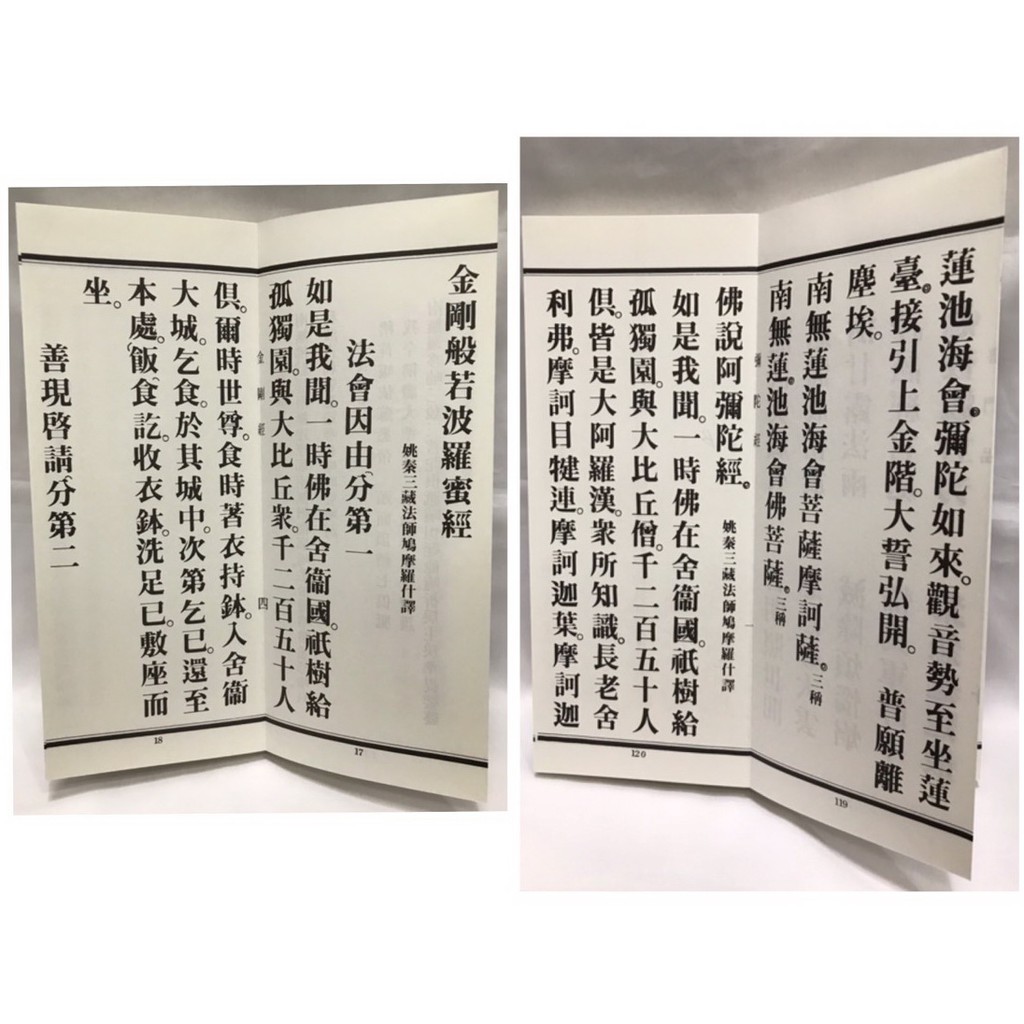 金剛般若波羅蜜經
姚秦三藏法師鳩摩羅什譯
法會因由分第一
如是我聞。一時佛在舍衞國。祇樹給
孤獨園。與大比丘衆。千二百五十人
金剛經
四
俱。爾時世尊。食時著衣持鉢。入舍衞
大城。乞食。於其城中。次第乞已。還至
本處。飯食訖。收衣鉢。洗足已。敷座而
坐。
善現啓請分第二
17
18
蓮池海會。彌陀如來。觀音勢至坐蓮
臺。接引上金階。大誓弘開。普願離
塵埃。
南無蓮池海會菩薩摩訶薩。三稱
南無蓮池海會佛菩薩。三稱
彌陀經
一
佛說阿彌陀經。
姚秦三藏法師鳩摩羅什譯
如是我聞。一時佛在舍衞國。祇樹給
孤獨園。與大比丘僧。千二百五十人
俱。皆是大阿羅漢。衆所知識。長老舍
利弗。摩訶目犍連。摩訶迦葉。摩訶迦
119
120